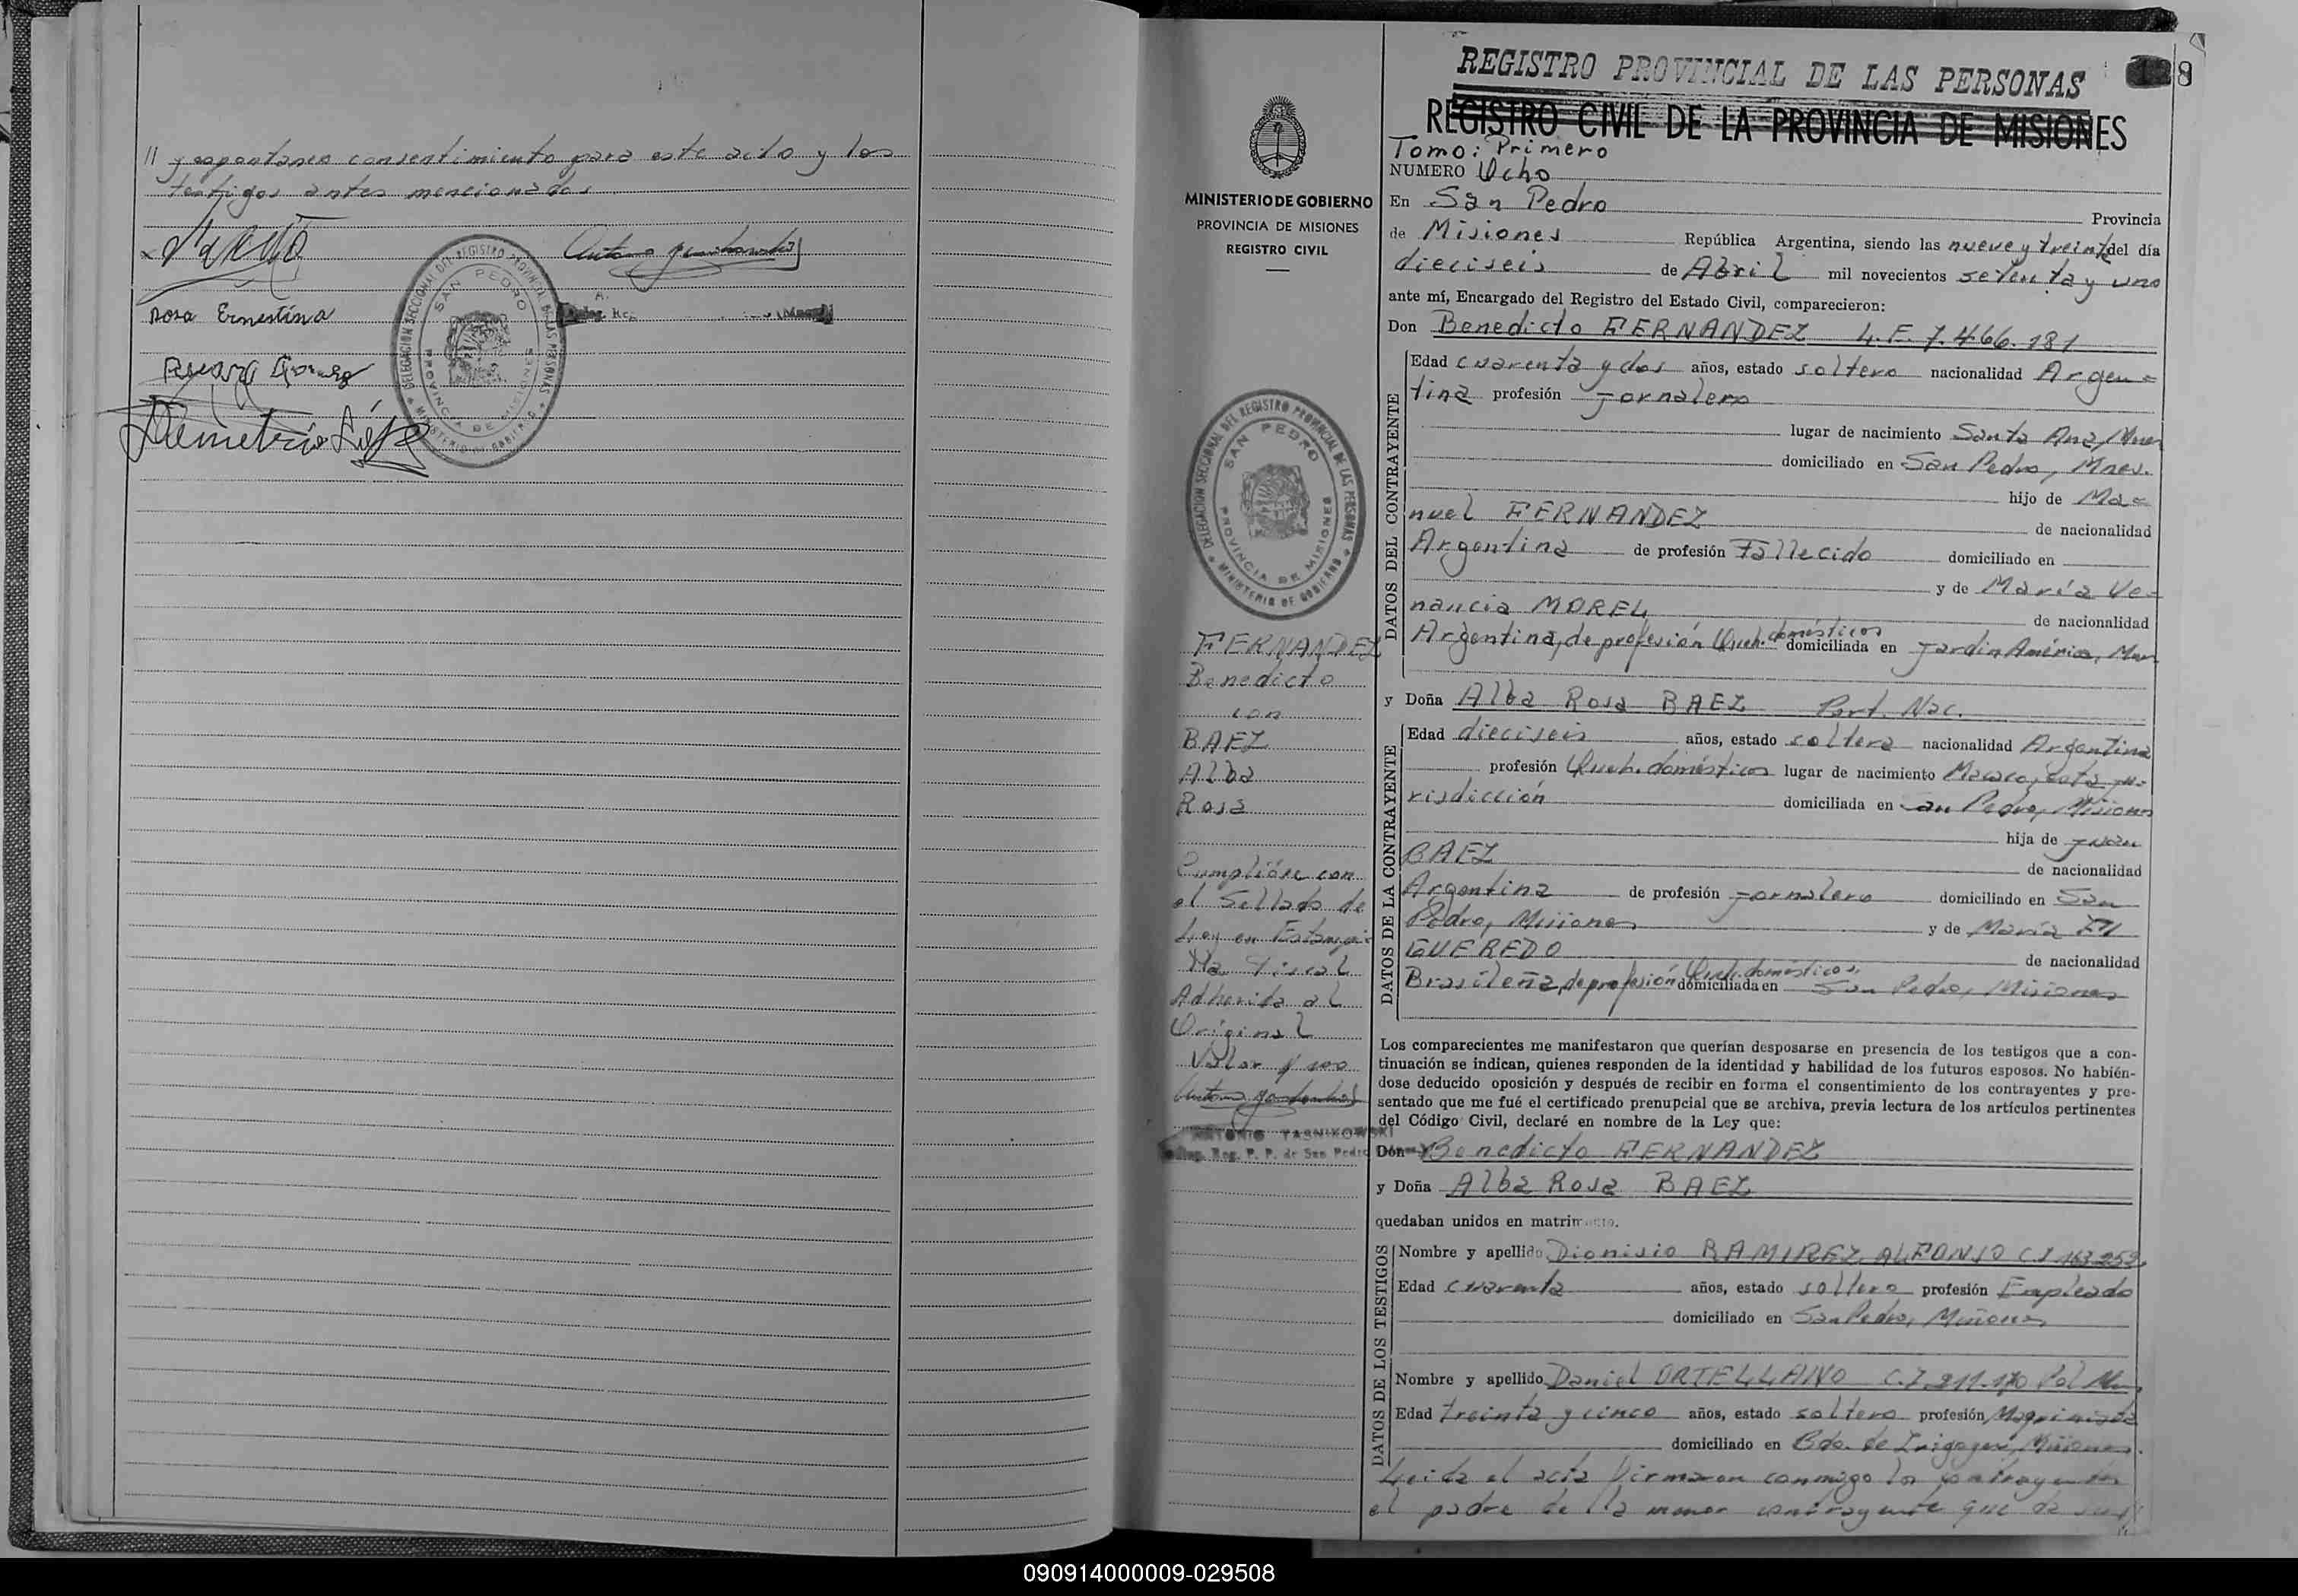 // y espontaneo consentimiento para este acto y los
testigos antes mencionados
Rosa Ernestina
Demetrio
DELEGACION SECCIONAL DEL REGISTRO PROVINCIAL DE LAS PERSONAS
SAN PEDRO
PROVINCIA DE MISIONES
MINISTERIO DE GOBIERNO
MINISTERIO DE GOBIERNO
PROVINCIA DE MISIONES
REGISTRO CIVIL
DELEGACION SECCIONAL DEL REGISTRO PROVINCIAL DE LAS PERSONAS
SAN PEDRO
PROVINCIA DE MISIONES
MINISTERIO DE GOBIERNO
FERNANDEZ
Benedicto
con
BAEZ
Alba
Rosa
Cumplióse con
el Sellado de
Ley en Estampi=
lla Fiscal
Adherida al
Original
Valor $
ANTONIO YASNIKOWSKI
Reg. P. P. de San Pedro
REGISTRO PROVINCIAL DE LAS PERSONAS
8
REGISTRO CIVIL DE LA PROVINCIA DE MISIONES
Tomo: Primero
NUMERO Ocho
En San Pedro Provincia
de Misiones República Argentina, siendo las nueve y treinta del día
dieciseis de Abril mil novecientos setenta y uno
ante mí, Encargado del Registro del Estado Civil, comparecieron:
Don Benedicto FERNANDEZ L.E. 7.466.181
DATOS DEL CONTRAYENTE
Edad cuarenta y dos años, estado soltero nacionalidad Argen=
tina profesión Jornalero
lugar de nacimiento Santa Ana, Mnes
domiciliado en San Pedro, Mnes.
hijo de Ma=
nuel FERNANDEZ
de nacionalidad
Argentina de profesión Fallecido domiciliado en
y de María Ve=
nancia MOREL
de nacionalidad
Argentina, de profesión Queh. domésticos domiciliada en Jardin América, Mnes
y Doña Alba Rosa BAEZ Part. Nac.
DATOS DE LA CONTRAYENTE
Edad dieciseis años, estado soltera nacionalidad Argentina
profesión Queh. domésticos lugar de nacimiento Macaco, esta ju=
risdicción domiciliada en San Pedro, Misiones
hija de Juan
BAEZ
de nacionalidad
Argentina de profesión Jornalero domiciliado en San
Pedro, Misiones y de María FI
GUEREDO
de nacionalidad
Brasileña, de profesión Queh. domésticos. domiciliada en San Pedro, Misiones
Los comparecientes me manifestaron que querían desposarse en presencia de los testigos que a con-
tinuación se indican, quienes responden de la identidad y habilidad de los futuros esposos. No habién-
dose deducido oposición y después de recibir en forma el consentimiento de los contrayentes y pre-
sentado que me fué el certificado prenupcial que se archiva, previa lectura de los artículos pertinentes
del Código Civil, declaré en nombre de la Ley que:
Don Benedicto FERNANDEZ
y Doña Alba Rosa BAEZ
quedaban unidos en matrimonio.
DATOS DE LOS TESTIGOS
Nombre y apellido Dionisio RAMIREZ ALFONSO C.I 163.253
Edad cuarenta años, estado soltero profesión Empleado
domiciliado en San Pedro, Misiones
Nombre y apellido Daniel ORTELLANO C.I 211.170 Pol Mnes
Edad treinta y cinco años, estado soltero profesión Maquinista
domiciliado en Bdo. de Irigoyen, Misiones.
Leida el acta firmaron conmigo los contrayentes
el padre de la menor contrayente que da su //
090914000009-029508